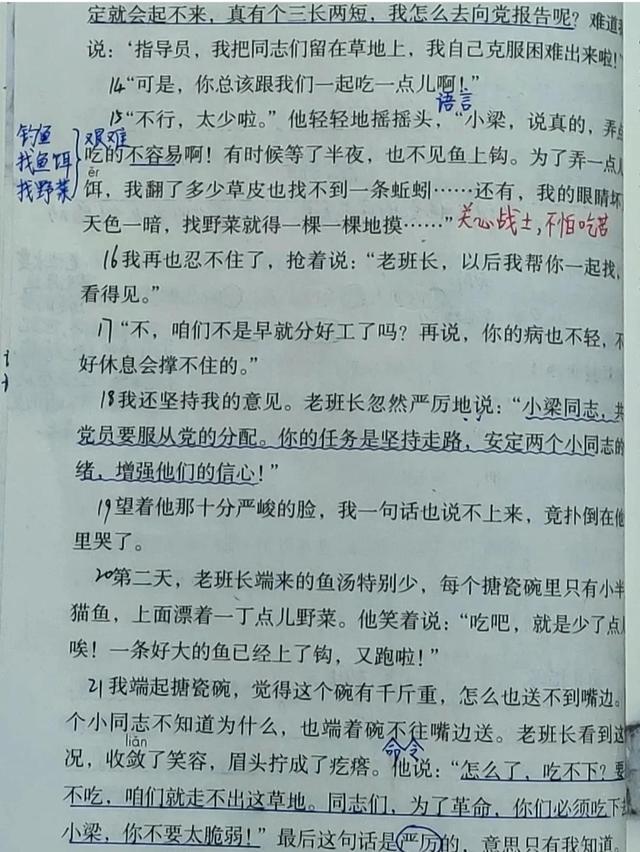 定就会起不来，真有个三长两短，我怎么去向党报告呢？难道
说：‘指导员，我把同志们留在草地上，我自己克服困难出来啦！
14“可是，你总该跟我们一起吃一点儿啊！”
语言
15“不行，太少啦。”他轻轻地摇摇头，“小梁，说真的，弄
钓鱼
找鱼饵
找野菜
艰难
吃的不容易啊！有时候等了半夜，也不见鱼上钩。为了弄一点
ěr
饵，我翻了多少草皮也找不到一条蚯蚓……还有，我的眼睛坏
天色一暗，找野菜就得一棵一棵地摸……”
关心战士，不怕吃苦
16我再也忍不住了，抢着说：“老班长，以后我帮你一起找，
看得见。”
17“不，咱们不是早就分好工了吗？再说，你的病也不轻，不
好休息会撑不住的。”
18我还坚持我的意见。老班长忽然严厉地说：“小梁同志，共
党员要服从党的分配。你的任务是坚持走路，安定两个小同志的
绪，增强他们的信心！”
19望着他那十分严峻的脸，我一句话也说不上来，竟扑倒在他
里哭了。
20第二天，老班长端来的鱼汤特别少，每个搪瓷碗里只有小半
猫鱼，上面漂着一丁点儿野菜。他笑着说：“吃吧，就是少了点
唉！一条好大的鱼已经上了钩，又跑啦！”
21我端起搪瓷碗，觉得这个碗有千斤重，怎么也送不到嘴边。
个小同志不知道为什么，也端着碗不往嘴边送。老班长看到这
liǎn
命令
况，收敛了笑容，眉头拧成了疙瘩。他说：“怎么了，吃不下？要
不吃，咱们就走不出这草地。同志们，为了革命，你们必须吃下
小梁，你不要太脆弱！”最后这句话是严厉的，意思只有我知道。